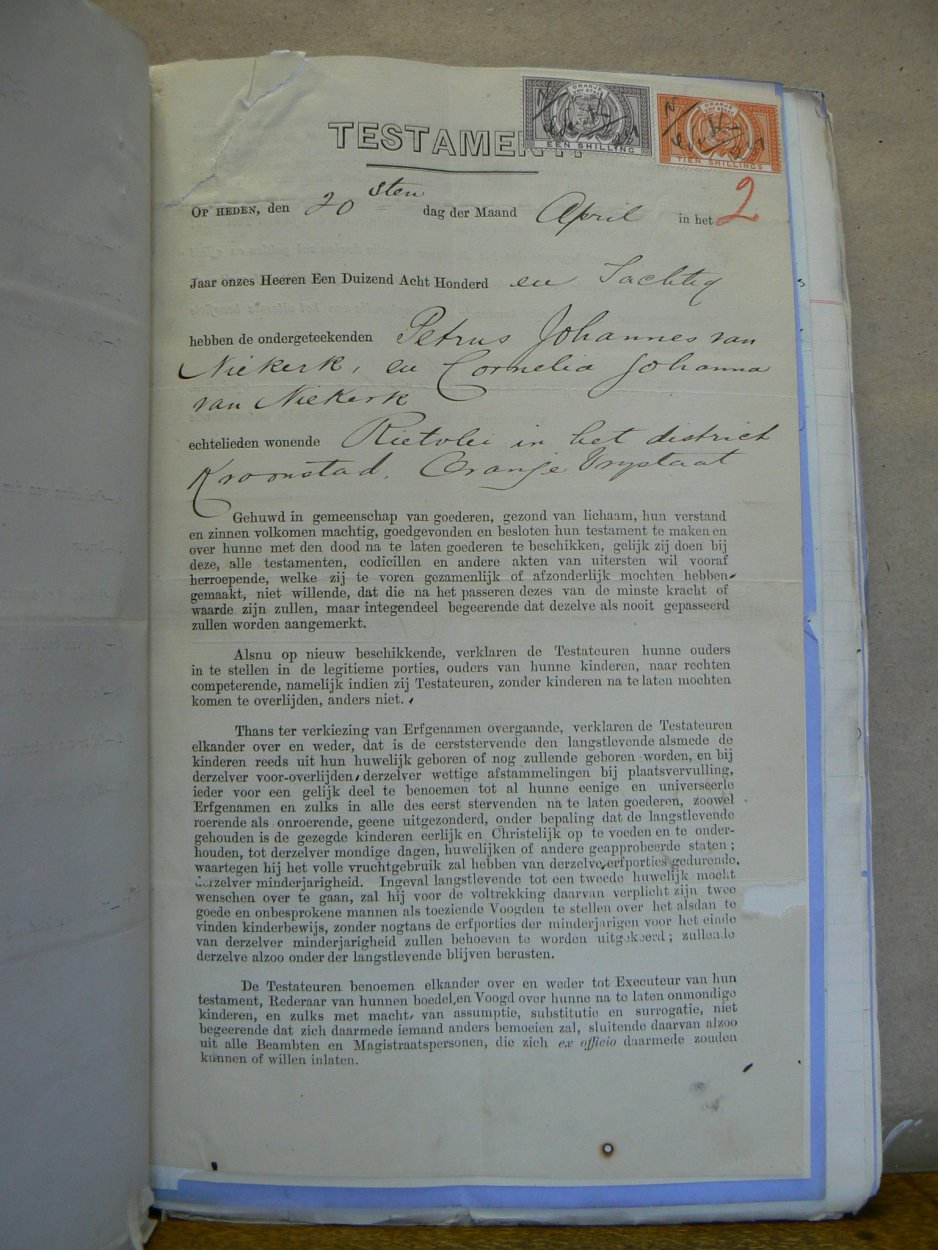 ORANJE VRY STAAT
EEN SHILLING
ORANJE VRY STAAT
TIEN SHILLINGS
TESTAMENT.
2
OP HEDEN, den 20sten dag der Maand April in het
Jaar onzes Heeren Een Duizend Acht Honderd en Tachtig
hebben de ondergeteekenden Petrus Johannes van
Niekerk, en Cornelia Johanna
van Niekerk
echtelieden wonende Rietvlei in het district
Kroonstad, Oranje Vrystaat
Gehuwd in gemeenschap van goederen, gezond van lichaam, hun verstand
en zinnen volkomen machtig, goedgevonden en besloten hun testament te maken en
over hunne met den dood na te laten goederen te beschikken, gelijk zij doen bij
deze, alle testamenten, codicillen en andere akten van uitersten wil vooraf
herroepende, welke zij te voren gezamenlijk of afzonderlijk mochten hebben
gemaakt, niet willende, dat die na het passeren dezes van de minste kracht of
waarde zijn zullen, maar integendeel begeerende dat dezelve als nooit gepasseerd
zullen worden aangemerkt.
Alsnu op nieuw beschikkende, verklaren de Testateuren hunne ouders
in te stellen in de legitieme porties, ouders van hunne kinderen, naar rechten
competerende, namelijk indien zij Testateuren, zonder kinderen na te laten mochten
komen te overlijden, anders niet.
Thans ter verkiezing van Erfgenamen overgaande, verklaren de Testateuren
elkander over en weder, dat is de eerststervende den langstlevende alsmede de
kinderen reeds uit hun huwelijk geboren of nog zullende geboren worden, en bij
derzelver voor-overlijden, derzelver wettige afstammelingen bij plaatsvervulling,
ieder voor een gelijk deel te benoemen tot al hunne eenige en universeele
Erfgenamen en zulks in alle des eerst stervenden na te laten goederen, zoowel
roerende als onroerende, geene uitgezonderd, onder bepaling dat de langstlevende
gehouden is de gezegde kinderen eerlijk en Christelijk op te voeden en te onder-
houden, tot derzelver mondige dagen, huwelijken of andere geapprobeerde staten;
waartegen hij het volle vruchtgebruik zal hebben van derzelver erfporties gedurende,
derzelver minderjarigheid. Ingeval langstlevende tot een tweede huwelijk mocht
wenschen over te gaan, zal hij voor de voltrekking daarvan verplicht zijn twee
goede en onbesprokene mannen als toeziende Voogden te stellen over het alsdan te
vinden kinderbewijs, zonder nogtans de erfporties der minderjarigen voor het einde
van derzelver minderjarigheid zullen behoeven te worden uitgekeerd; zullende
derzelve alzoo onder der langstlevende blijven berusten.
De Testateuren benoemen elkander over en weder tot Executeur van hun
testament, Rederaar van hunnen boedel, en Voogd over hunne na te laten onmondige
kinderen, en zulks met macht, van assumptie, substitutie en surrogatie, niet
begeerende dat zich daarmede iemand anders bemoeien zal, sluitende daarvan alzoo
uit alle Beambten en Magistraatspersonen, die zich ex officio daarmede zouden
kunnen of willen inlaten.